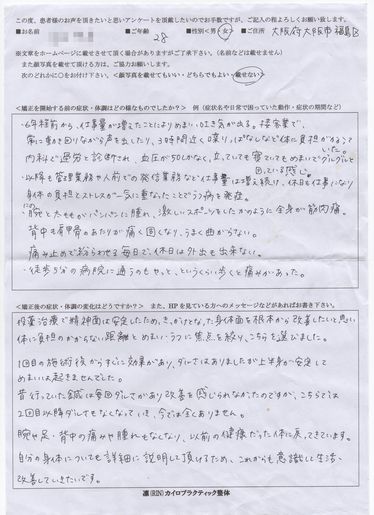 この度、患者様のお声を頂きたいと思いアンケートを頂戴したいのでお手数ですが、ご記入の程よろしくお願い致します。
■お名前 ■ご年齢 28 ■性別<男・女> ■ご住所 大阪府大阪市福島区
※文章をホームページに載せさせて頂く場合がありますがご了承下さい。(名前などは載せません)
また顔写真を載せて頂ける方は、ご協力お願いします。
次のどれかに○をお付け下さい。<顔写真を載せてもいい・どちらでもよい・載せない>
<矯正を開始する前の症状・体調はどの様なものでしたか?> 例(症状名や日常で困っていた動作・症状の期間など)
・6年程前から、仕事量が増えたことによりめまい、吐き気が出る。接客業で、
常に動き回りながら声を出したり、3時間近く喋りっぱなしなど体に負担がかかって
いた。
内科で過労と診断され、血圧が50しかなく、立っていても寝ていてもめまいでグルグルと
回っている感じ。
・以降も管理業務や人前での発信業務など仕事量は増え続け、休日も仕事になり
身体の負担とストレスが一気に重なったことでうつ病を発症。
・腕とたももがパンパンに腫れ、激しいスポーツをしたかのように全身が筋肉痛。
背中も肩甲骨のあたりが痛く固くなり、うまく曲がらない。
痛み止めで紛らわせる毎日で、休日は外出も出来ない。
・徒歩5分の病院に通うのもやっと、というくらい歩くと痛みがあった。
<矯正後の症状・体調の変化はどうですか?> また、HPを見ている方へのメッセージなどがあればお書き下さい。
投薬治療で精神面は安定したため、きっかけとなった身体面を根本から改善したいと思い
体に負担のかからない距離とめまい・うつに焦点を絞り、こちらを選びました。
1回目の施術後からすぐに効果があり、ダルさはありましたが上半身が安定して
めまいは起きませんでした。
昔行っていた鍼は毎回ダルさがあり改善を感じられなかったのですが、こちらでは
2回目以降ダルさもなくなっていき、今では全くありません。
腕や足・背中の痛みや腫れもなくなり、以前の健康だった体に戻ってきています。
自分の身体についても詳細に説明して頂けるため、これからも意識して生活、
改善していきたいです。
凛(RIN)カイロプラクティック整体